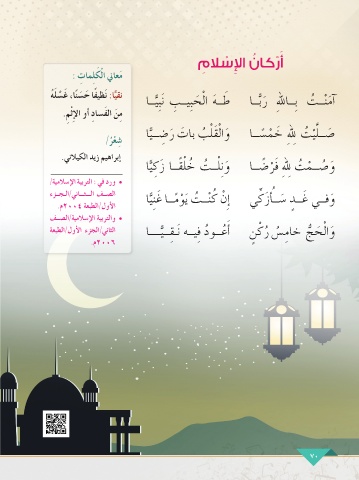 أَرْكانُ الإِسْلامِ
آمَنْـتُ بِـاللهِ رَبًّـا طَـهَ الْحَبِيـبِ نَبِيَّـا
صَـلَّيْتُ لِلهِ خَمْسًـا وَالْقَلْبُ باتَ رَضِـيَّا
وَصُـمْتُ لِلهِ فَرْضًـا وَنِلْـتُ خُلْقًـا زَكِيَّا
وَفـي غَـدٍ سَـأُزَكّي إِنْ كُنْـتُ يَوْمًـا غَنِيَّا
وَالْحَجُّ خامِسُ رُكْنٍ أَعُـودُ فِيـهِ نَـقِـيَّـا
مَعاني الْكَلِماتِ :
نَقيًّا: نَظيفًا حَسَنًا، غَسْلَهُ
مِنَ الفَسادِ أَوِ الإِثْمِ.
شِعْرُ/
إبراهيم زيد الكيلاني.
• ورد في : التربية الإسلامية/
الصف الـثـاني/الجـزء
الأول/الطبعة ٢٠٠٤م.
• والتربية الإسلامية/الصف
الثاني/الجزء الأول/الطبعة
٢٠٠٦م.
٧٠